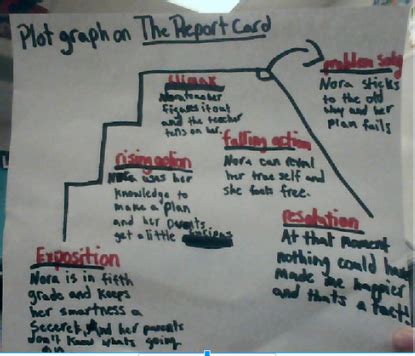 Plot graph on The Report Card
climax
Nora teacher
figures it out
and the teacher
tells on her.
problem solving
Nora sticks
to the old
way and her
plan fails
rising action
Nora uses her
knowledge to
make a plan
and her parents
get a little
falling action
Nora can reveal
her true self and
she feels free.
resolution
At that moment
nothing could have
made me happier
and thats a fact!
Exposition
Nora is in fifth
grade and keeps
her smartness a
Secret. And her parents
don't know whats going
on